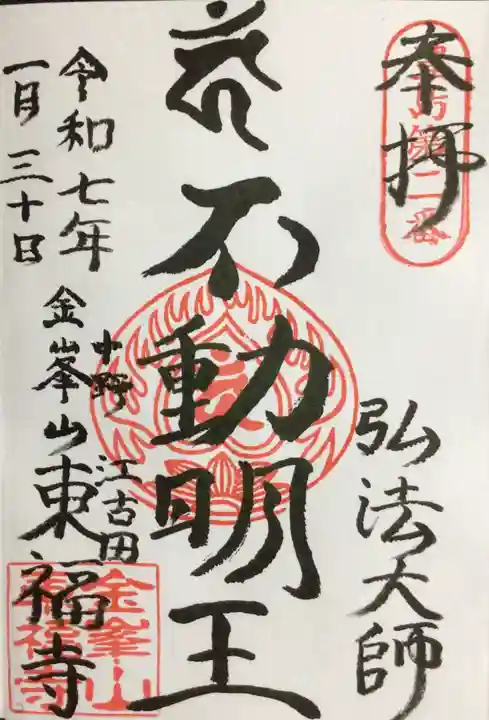 奉拝
豊島第二番
弘法大師
不動明王
令和七年
一月三十日
中野
江古田
金峯山東福寺
金峯山
東福寺